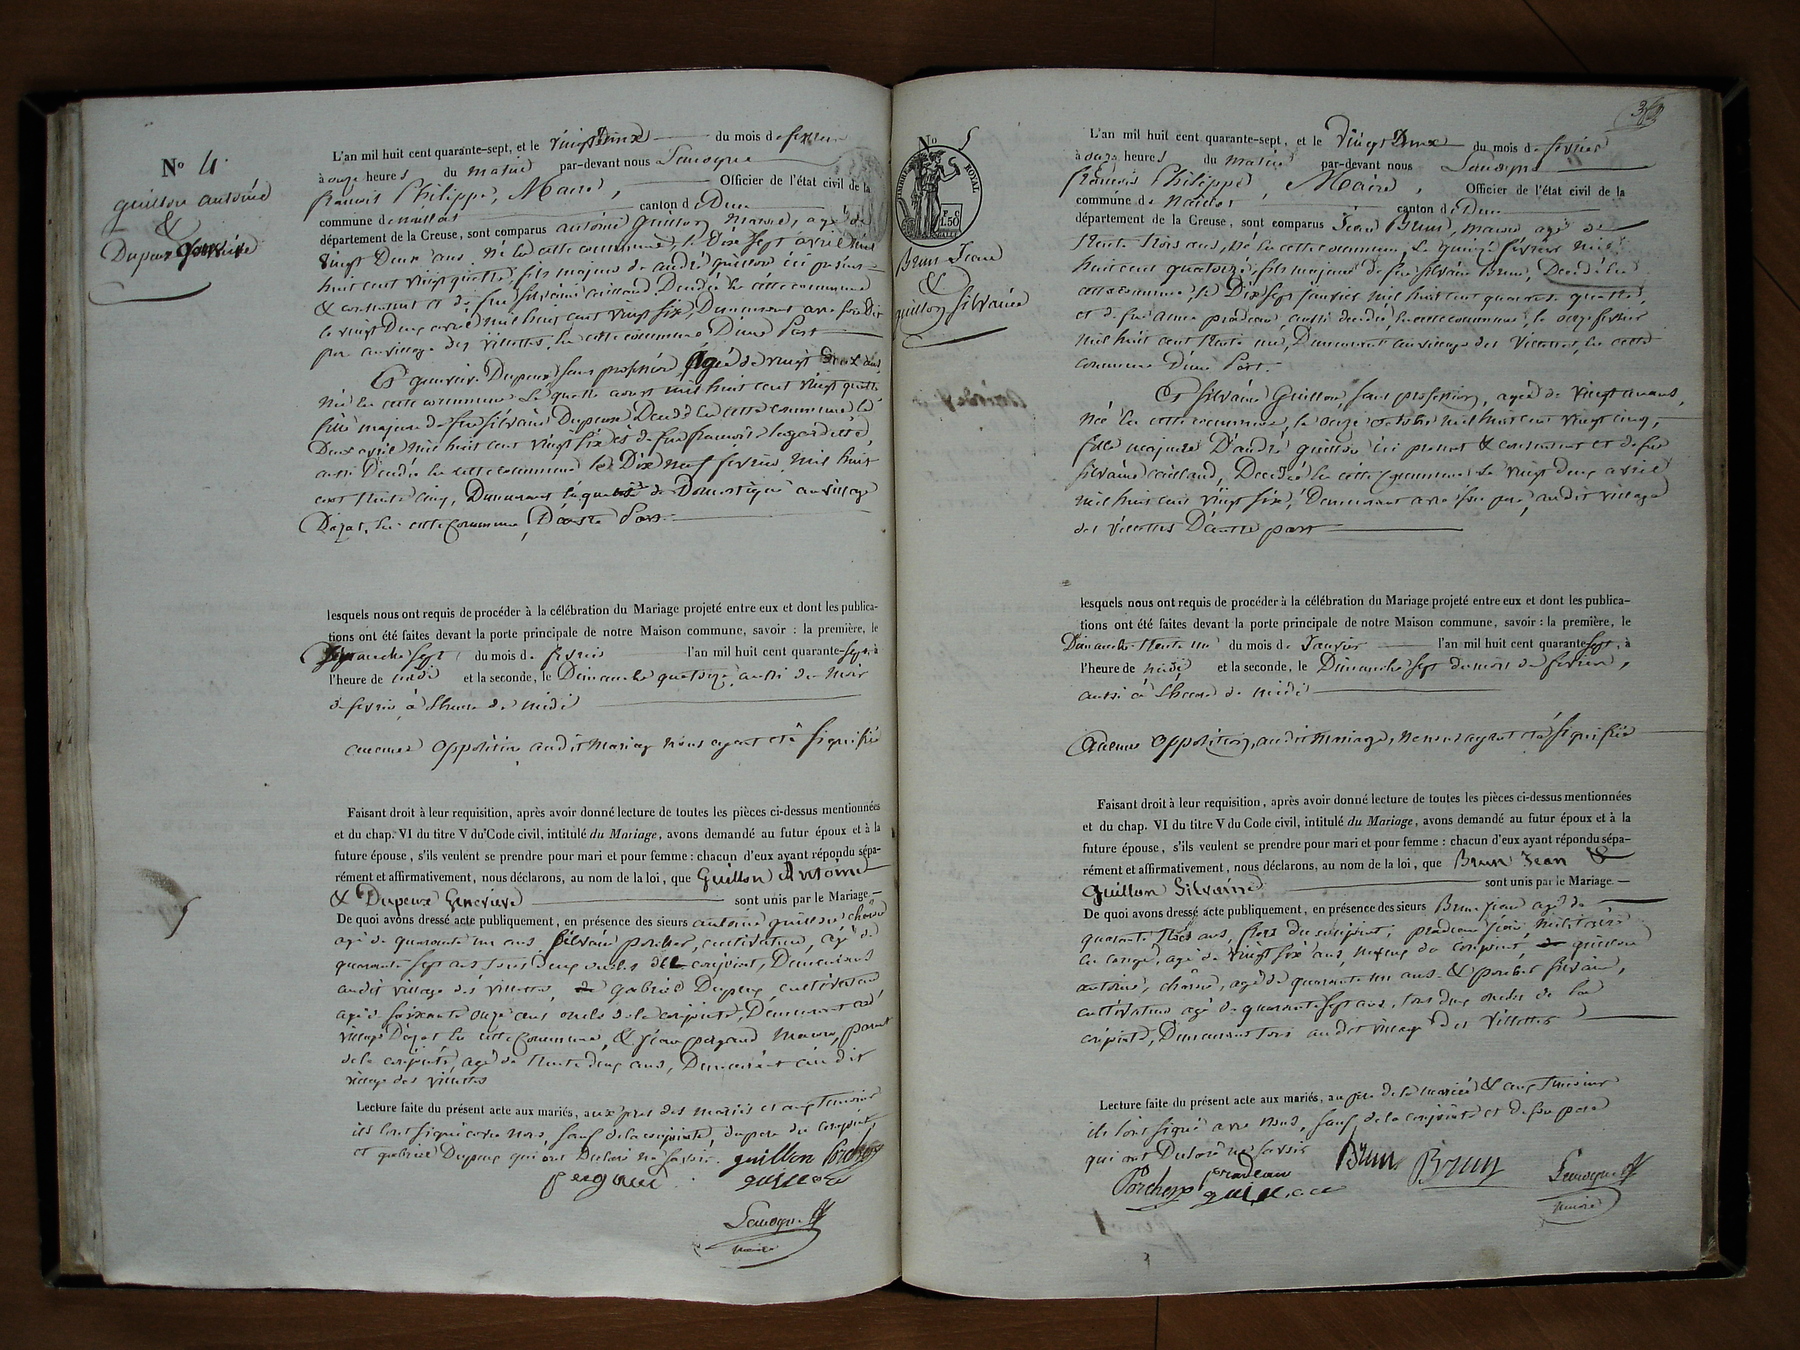 N° 4.
guillon antoine
&
Dupeux Genevieve
L'an mil huit cent quarante-sept, et le vingt Deux du mois de fevrier
à onze heures du matin par-devant nous Lamoyne
francois Philippe, Maire, Officier de l'état civil de la
commune de naillat canton de Dun
département de la Creuse, sont comparus antoine Guillon, agé de
vingt Deux ans, né en cette commune, le Dix Sept avril mil
huit cent vingt quatre, fils majeur de andré guillon ici présent
& consentant et de feu silvaine caillaud, Decedée en cette commune
le vingt Deux avril mil huit cent vingt six, Demeurant avec son dit
pere au village des villettes, en cette commune D'une Part
Et genevieve Dupeux sans profession Agée de vingt Deux ans,
née en cette commune le quatre aout mil huit cent vingt quatre
fille majeure de feu silvain Dupeux Decedé en cette commune le
Deux avril mil huit cent vingt six et de feu francoise lagardette,
aussi Decedée en cette commune le Dix neuf fevrier mil huit
cent trente cinq, Demeurant en qualité de Domestique au village
D'ajat, en cette Commune, D'autre Part
lesquels nous ont requis de procéder à la célébration du Mariage projeté entre eux et dont les publica-
tions ont été faites devant la porte principale de notre Maison commune, savoir : la première, le
Dimanche sept du mois de fevrier l'an mil huit cent quarante-sept, à
l'heure de midi et la seconde, le Dimanche quatorze aussi du mois
de fevrier à l'heure de midi
aucune opposition audit mariage nous ayant été signifiée
Faisant droit à leur requisition, après avoir donné lecture de toutes les pièces ci-dessus mentionnées
et du chap. VI du titre V du Code civil, intitulé du Mariage, avons demandé au futur époux et à la
future épouse, s'ils veulent se prendre pour mari et pour femme : chacun d'eux ayant répondu sépa-
rément et affirmativement, nous déclarons, au nom de la loi, que Guillon Antoine
& Dupeux Genevieve sont unis par le Mariage.—
De quoi avons dressé acte publiquement, en présence des sieurs antoine guillon
agé de quarante un ans, Silvain porcher, cultivateur, agé de
quarante sept ans tous deux oncles du conjoint, Demeurant
audit village des villettes, gabriel Dupeux, cultivateur
agé de soixante onze ans oncle de la conjointe, Demeurant au
village D'ajat en cette Commune, & jean pergaud, parent
de la conjointe, agé de trente deux ans, Demeurant audit
village des villettes
Lecture faite du présent acte aux mariés, aux peres des mariés et aux temoins
ils l'ont signé avec nous, sauf de la conjointe, du pere du conjoint,
et gabriel Dupeux qui ont Declaré ne savoir. guillon Porcher
pergaud guillon
Lamoyne
maire
N° 5
TIMBRE ROYAL
Brun Jean
&
guillon Silvaine
L'an mil huit cent quarante-sept, et le Vingt Deux du mois de fevrier
à onze heures du matin par-devant nous Lamoyne
francois Philippe, Maire, Officier de l'état civil de la
commune de Naillat canton de Dun
département de la Creuse, sont comparus Jean Brun, agé de
trente trois ans, né en cette commune, le quinze fevrier mil
huit cent quatorze, fils majeur de feu silvain Brun, Decedé en
cette commune, le Dix sept janvier mil huit cent quarante quatre,
et de feu anne pradeau, aussi decedée, en cette commune, le onze fevrier
mil huit cent trente un, Demeurant au village des Villettes, en cette
commune D'une Part.
Et Silvaine Guillon, sans profession, agée de vingt un ans,
née en cette commune, le onze octobre mil huit cent vingt cinq,
fille majeure D'andré guillon ici présent & consentant et de feu
silvaine caillaud, Decedée en cette commune le vingt deux avril
mil huit cent vingt six, Demeurant avec son pere, audit village
des villettes D'autre part
lesquels nous ont requis de procéder à la célébration du Mariage projeté entre eux et dont les publica-
tions ont été faites devant la porte principale de notre Maison commune, savoir : la première, le
Dimanche trente un du mois de Janvier l'an mil huit cent quarante-sept, à
l'heure de midi et la seconde, le Dimanche sept du mois de fevrier,
aussi à l'heure de midi
Aucune opposition, audit mariage, ne nous ayant été signifiée
Faisant droit à leur requisition, après avoir donné lecture de toutes les pièces ci-dessus mentionnées
et du chap. VI du titre V du Code civil, intitulé du Mariage, avons demandé au futur époux et à la
future épouse, s'ils veulent se prendre pour mari et pour femme : chacun d'eux ayant répondu sépa-
rément et affirmativement, nous déclarons, au nom de la loi, que Brun Jean &
Guillon Silvaine sont unis par le Mariage.—
De quoi avons dressé acte publiquement, en présence des sieurs Brun jean agé de
quarante trois ans, frere du conjoint, pradeau jean, militaire
en congé, agé de vingt six ans, neveu du conjoint guillon
antoine, agé de quarante un ans & porcher silvain,
cultivateur agé de quarante sept ans, tous deux oncles de la
conjointe, Demeurant tous audit village des Villettes
Lecture faite du présent acte aux mariés, au pere de la mariée & aux temoins
ils l'ont signé avec nous, sauf de la conjointe et de son pere
qui ont Declaré ne savoir
Porcher pradeau Brun Brun Lamoyne
guillon maire